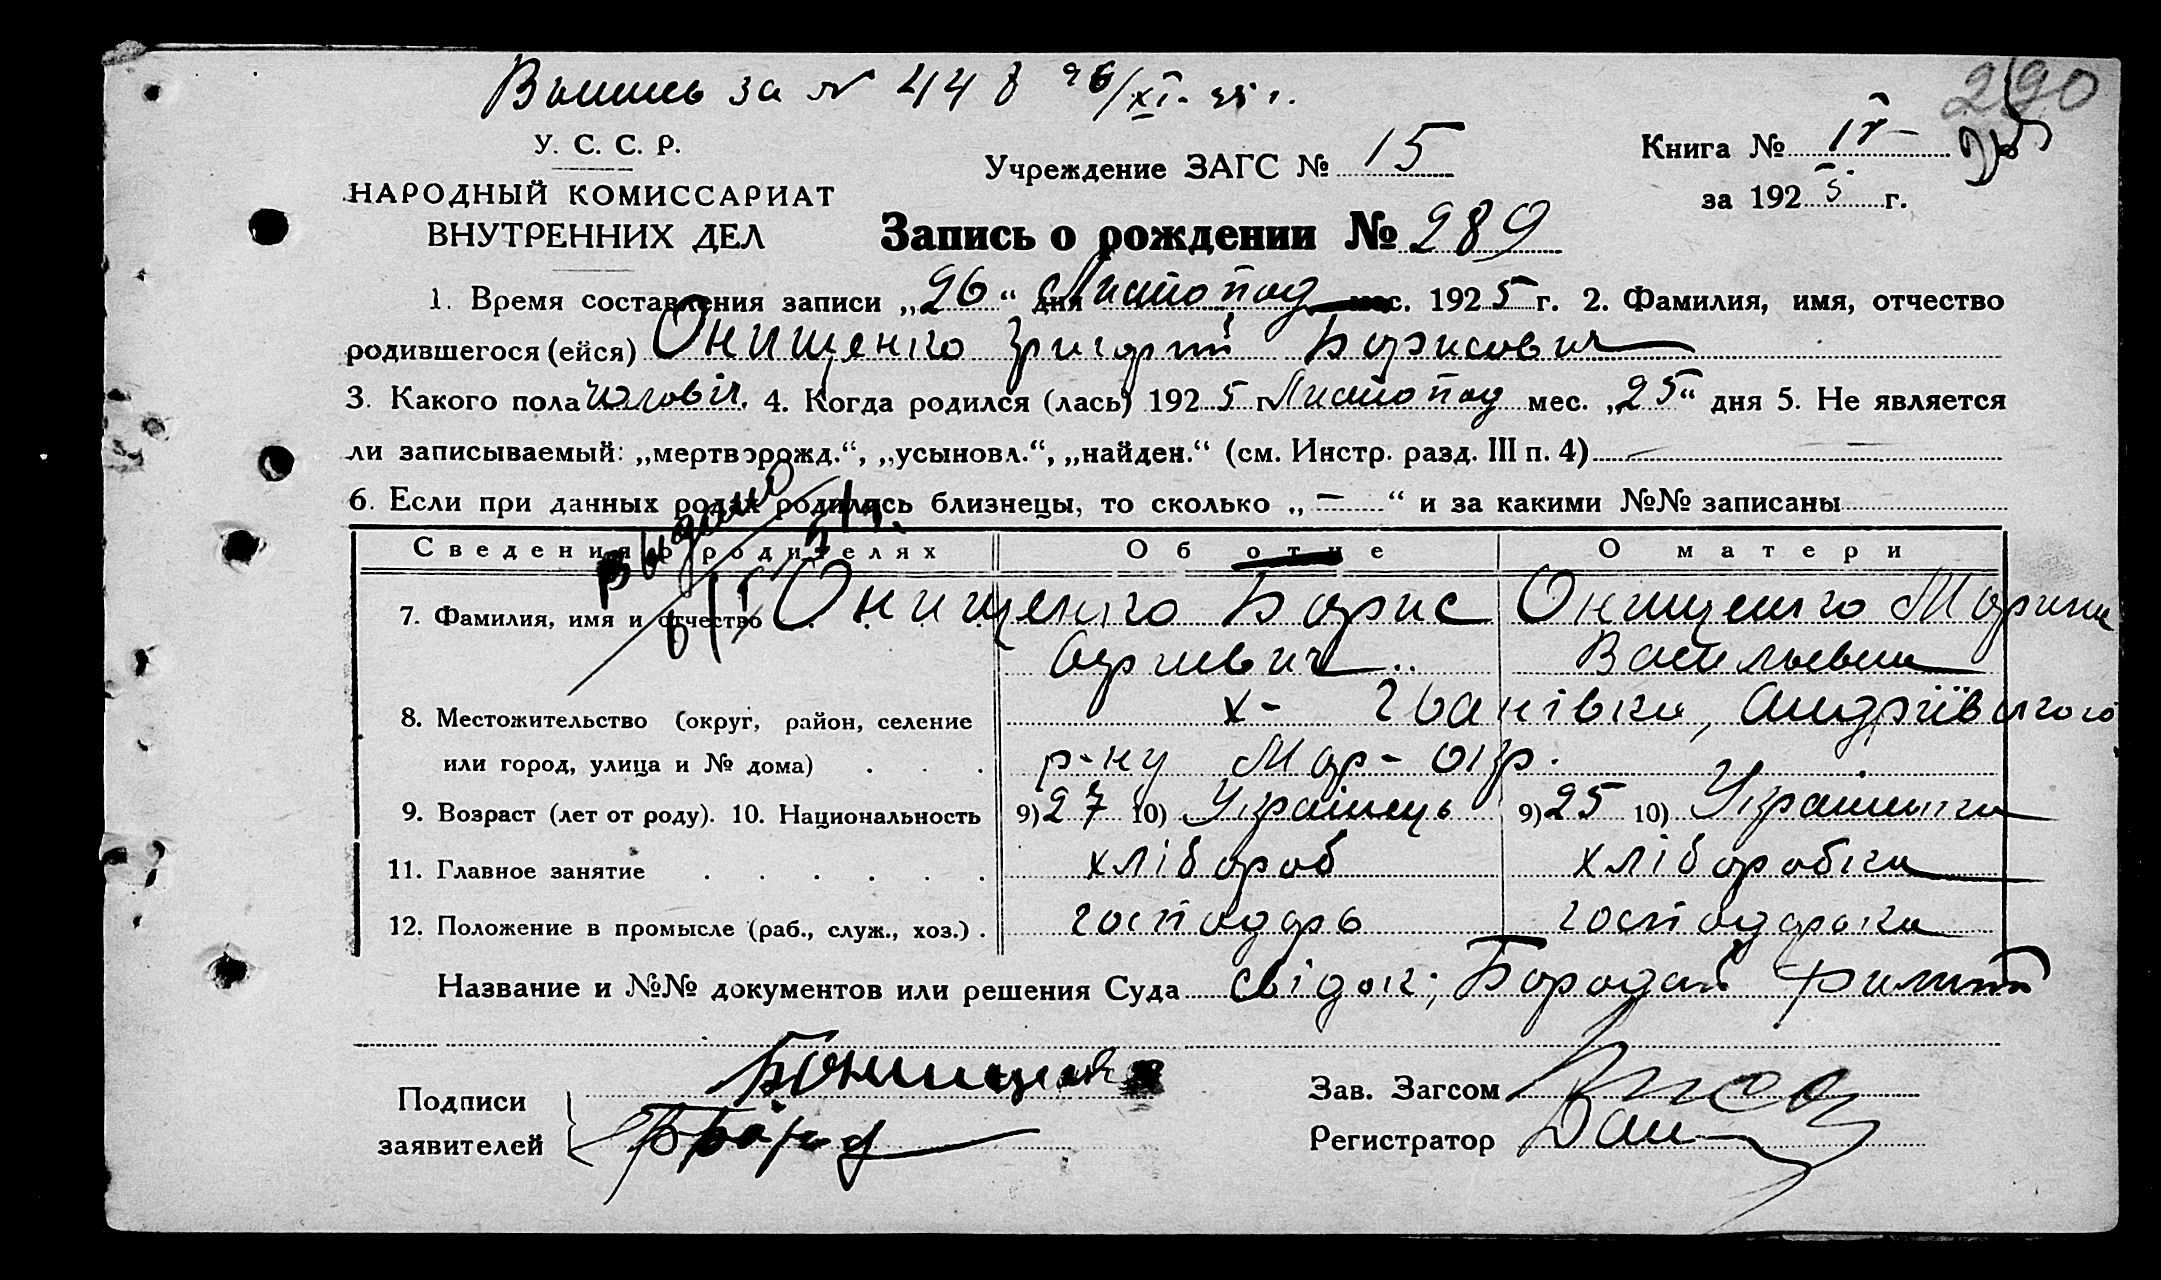 Выпись за № 448 26/XI-25 г.
290
У. С. С. Р.
НАРОДНЫЙ КОМИССАРИАТ
ВНУТРЕННИХ ДЕЛ
Учреждение ЗАГС № 15
Книга №
за 1925 г.
Запись о рождении № 289
1. Время составления записи „26“ дня Листопад мес. 1925 г. 2. Фамилия, имя, отчество
родившегося (ейся) Онищенко Григорий Борисович
3. Какого пола чоловіч. 4. Когда родился (лась) 1925 г. Листопад мес. „25“ дня 5. Не является
ли записываемый: „мертворожд.“, „усыновл.“, „найден.“ (см. Инстр. разд. III п. 4) —
6. Если при данных родах родились близнецы, то сколько „—“ и за какими №№ записаны
Выдано
Сведения о родителях Об отце О матери
7. Фамилия, имя и отчество Онищенко Борис Онищенко Марина
Васильевна
8. Местожительство (округ, район, селение х- Іванівка, Андріївського
или город, улица и № дома) р-ну Мар- окр.
9. Возраст (лет от роду). 10. Национальность 9) 27 10) Українець 9) 25 10) Українка
11. Главное занятие хлібороб хліборобка
12. Положение в промысле (раб., служ., хоз.) господарь господарька
Название и №№ документов или решения Суда свідок; Бородай Филип
Подписи
заявителей
Зав. Загсом
Регистратор